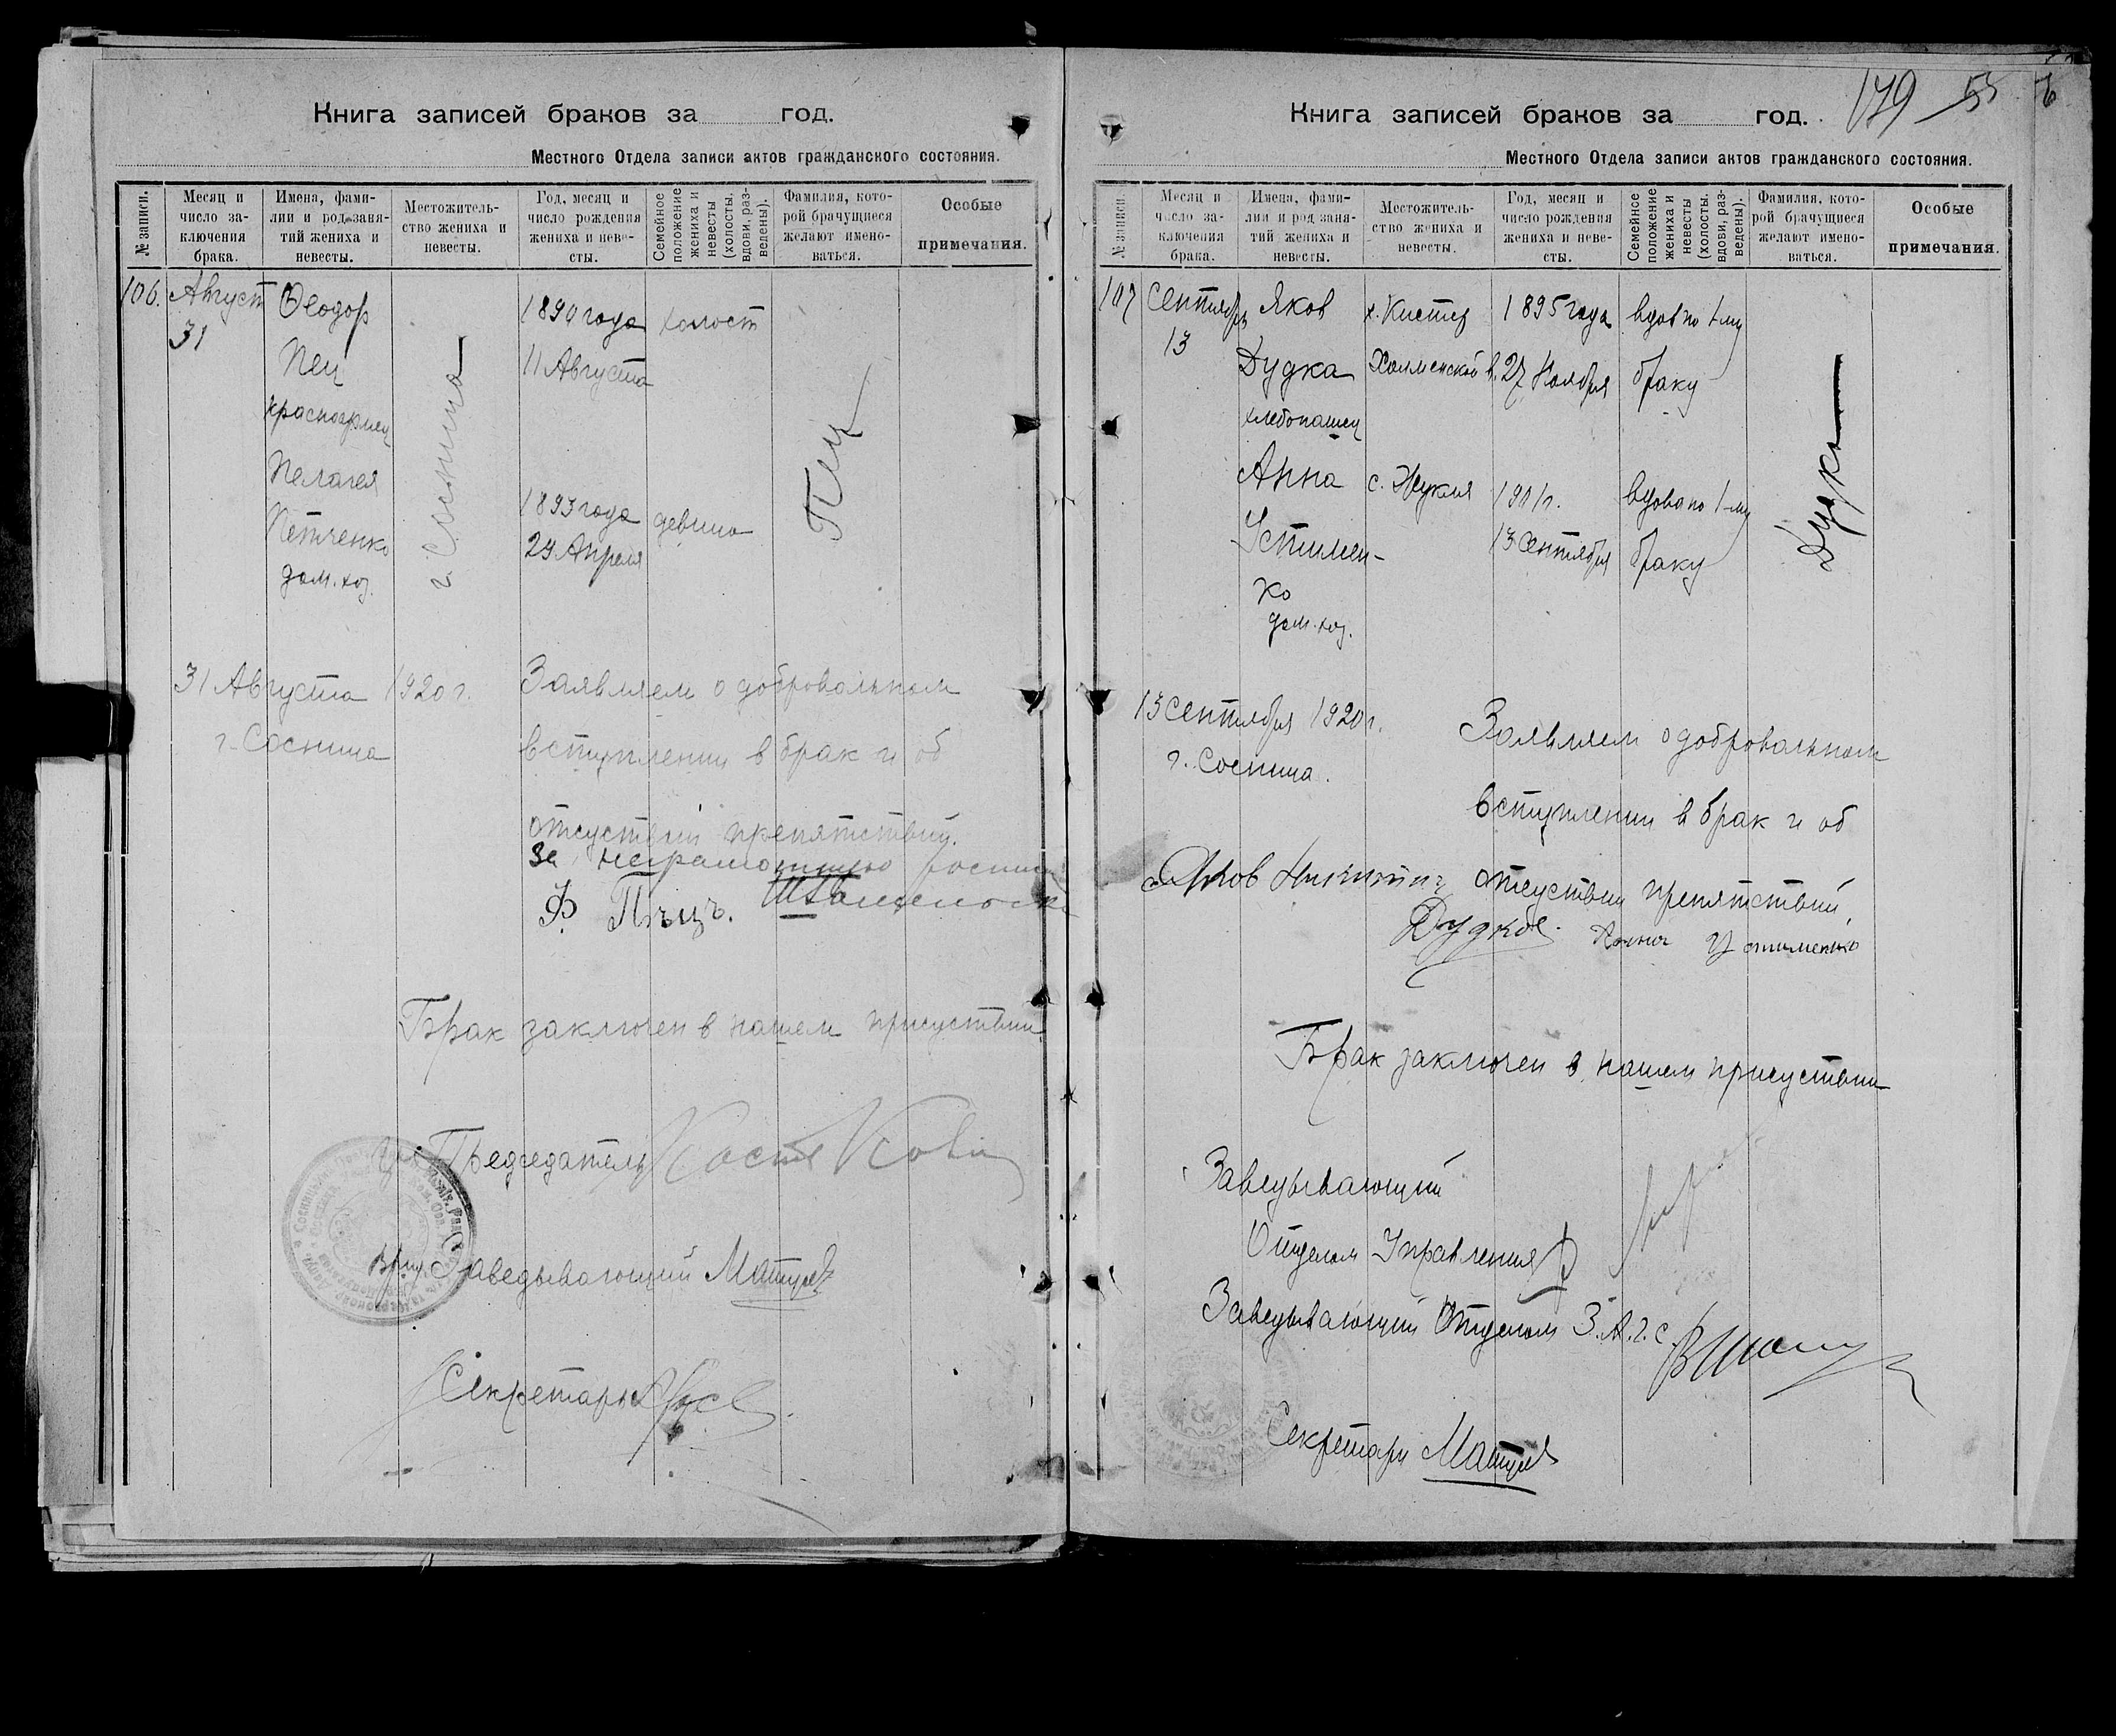 Книга записей браков за год.
Местного Отдела записи актов гражданского состояния.
№ записи.
Месяц и число за-
ключения
брака.
Имена, фами-
лии и род заня-
тий жениха и
невесты.
Местожитель-
ство жениха и
невесты.
Год, месяц и
число рождения
жениха и неве-
сты.
Семейное
положение
жениха и
невесты
(холосты,
вдови, раз-
ведены).
Фамилия, кото-
рой брачущиеся
желают имено-
ваться.
Особые
примечания.
106. Август
31
Феодор
Пец
красноармеец
Пелагея
Петченко
дом. хоз.
г. Сосница
1890 года
11 Августа
1893 года
24 Апреля
холост
девица
Пец
31 Августа 1920 г.
г. Сосница
Заявляем о добровольном
вступлении в брак и об
отсуствии препятствий.
За неграмотную
Ф. Пъцъ.
Брак заключен в нашем присуствии
Председатель
Врид. Заведывающий
Секретарь
Книга записей браков за год.
179 55
Местного Отдела записи актов гражданского состояния.
№ записи.
Месяц и
число за-
ключения
брака.
Имена, фами-
лии и род заня-
тий жениха и
невесты.
Местожитель-
ство жениха и
невесты.
Год, месяц и
число рождения
жениха и неве-
сты.
Семейное
положение
жениха и
невесты
(холосты,
вдови, раз-
ведены).
Фамилия, кото-
рой брачущиеся
желают имено-
ваться.
Особые
примечания.
107 Сентябрь
13
Яков
Дудка
хлебопашец
Анна
Устимен-
ко
дом. хоз.
х. Кистер
Холменской в.
с. Жукля
1895 года
27 Ноября
1901 г.
13 Сентября
вдов по 1-му
браку
вдова по 1-му
браку
Дудка
13 Сентября 1920 г.
г. Сосница.
Заявляем о добровольном
вступлении в брак и об
отсуствии препятствий.
Яков
Дудка.
Анна Устименко
Брак заключен в нашем присуствии
Заведывающий
Отделом Управления
Заведывающий Отделом З.А.Г.С.
Секретарь